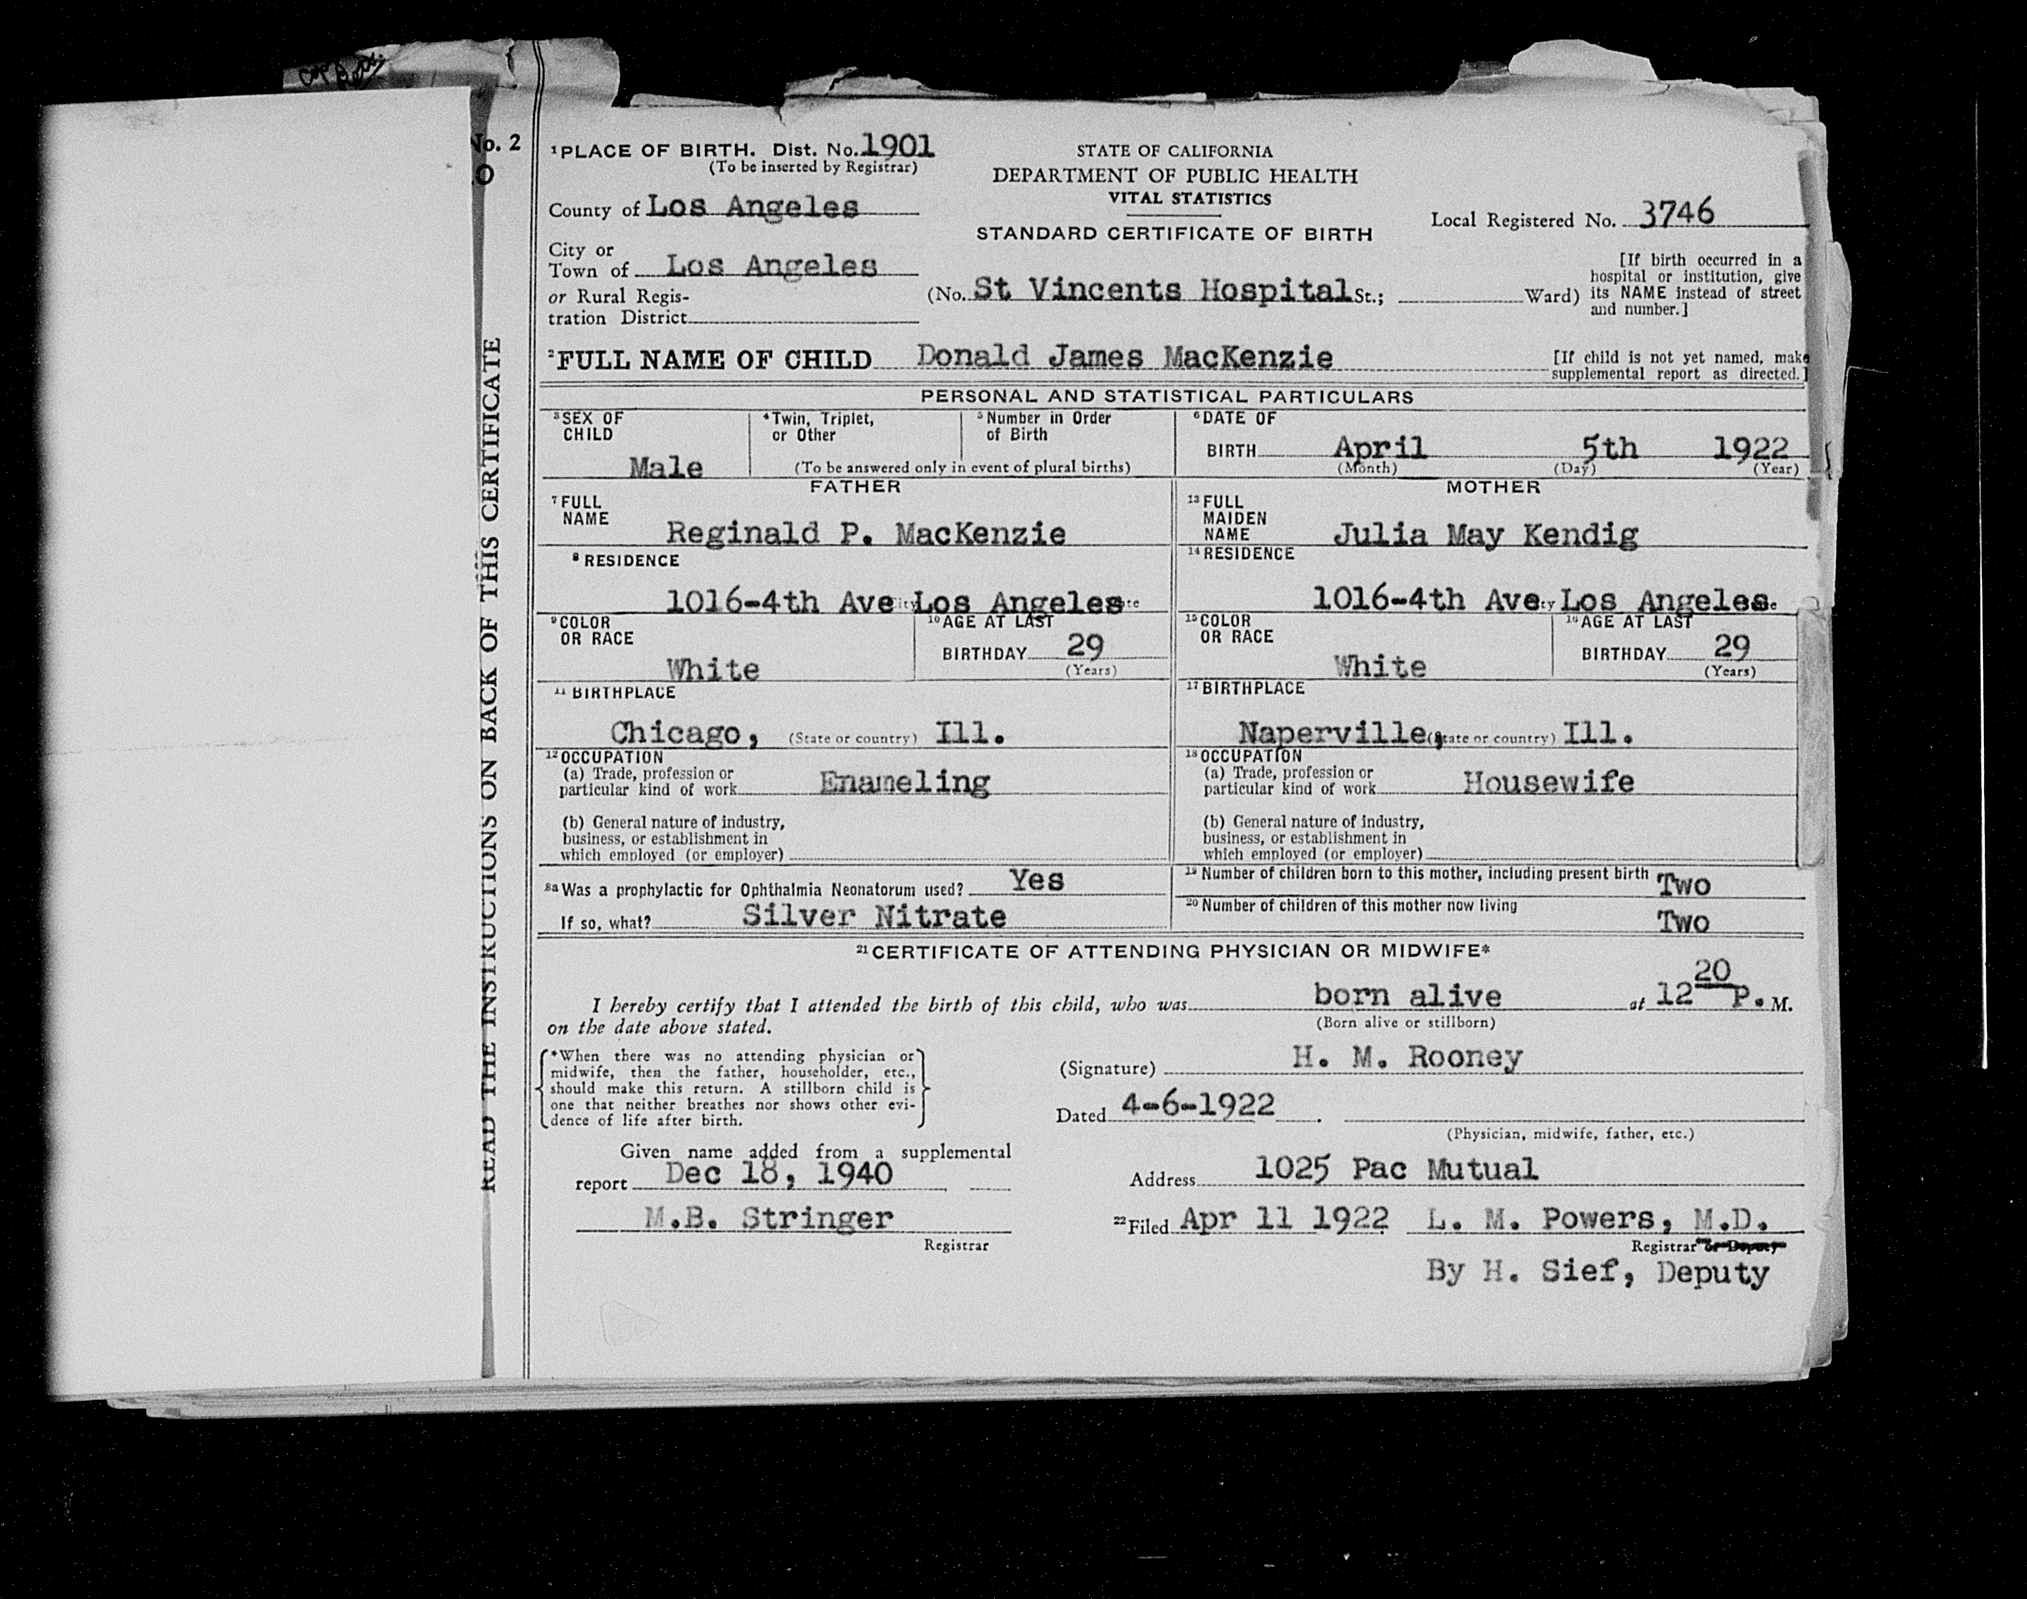 No. 2
READ THE INSTRUCTIONS ON BACK OF THIS CERTIFICATE
1 PLACE OF BIRTH. Dist. No. 1901
(To be inserted by Registrar)
County of Los Angeles
City or
Town of Los Angeles
or Rural Regis-
tration District
STATE OF CALIFORNIA
DEPARTMENT OF PUBLIC HEALTH
VITAL STATISTICS
STANDARD CERTIFICATE OF BIRTH
Local Registered No. 3746
(No. St Vincents Hospital St.; Ward)
[If birth occurred in a
hospital or institution, give
its NAME instead of street
and number.]
2 FULL NAME OF CHILD Donald James MacKenzie
[If child is not yet named, make
supplemental report as directed.]
PERSONAL AND STATISTICAL PARTICULARS
3 SEX OF
CHILD
Male
4 Twin, Triplet,
or Other
5 Number in Order
of Birth
(To be answered only in event of plural births)
6 DATE OF
BIRTH April 5th 1922
(Month) (Day) (Year)
FATHER
7 FULL
NAME
Reginald P. MacKenzie
8 RESIDENCE
1016-4th Ave Los Angeles
9 COLOR
OR RACE
White
10 AGE AT LAST
BIRTHDAY 29
(Years)
11 BIRTHPLACE
Chicago, (State or country) Ill.
12 OCCUPATION
(a) Trade, profession or
particular kind of work Enameling
(b) General nature of industry,
business, or establishment in
which employed (or employer)
MOTHER
13 FULL
MAIDEN
NAME Julia May Kendig
14 RESIDENCE
1016-4th Ave Los Angeles
15 COLOR
OR RACE
White
16 AGE AT LAST
BIRTHDAY 29
(Years)
17 BIRTHPLACE
Naperville, (State or country) Ill.
18 OCCUPATION
(a) Trade, profession or
particular kind of work Housewife
(b) General nature of industry,
business, or establishment in
which employed (or employer)
8a Was a prophylactic for Ophthalmia Neonatorum used? Yes
If so, what? Silver Nitrate
19 Number of children born to this mother, including present birth Two
20 Number of children of this mother now living
Two
21 CERTIFICATE OF ATTENDING PHYSICIAN OR MIDWIFE*
I hereby certify that I attended the birth of this child, who was born alive at 12 20 P. M.
on the date above stated.
(Born alive or stillborn)
*When there was no attending physician or
midwife, then the father, householder, etc.,
should make this return. A stillborn child is
one that neither breathes nor shows other evi-
dence of life after birth.
(Signature) H. M. Rooney
Dated 4-6-1922
(Physician, midwife, father, etc.)
Given name added from a supplemental
report Dec 18, 1940
M.B. Stringer
Registrar
Address 1025 Pac Mutual
22 Filed Apr 11 1922 L. M. Powers, M.D.
Registrar or Deputy
By H. Sief, Deputy